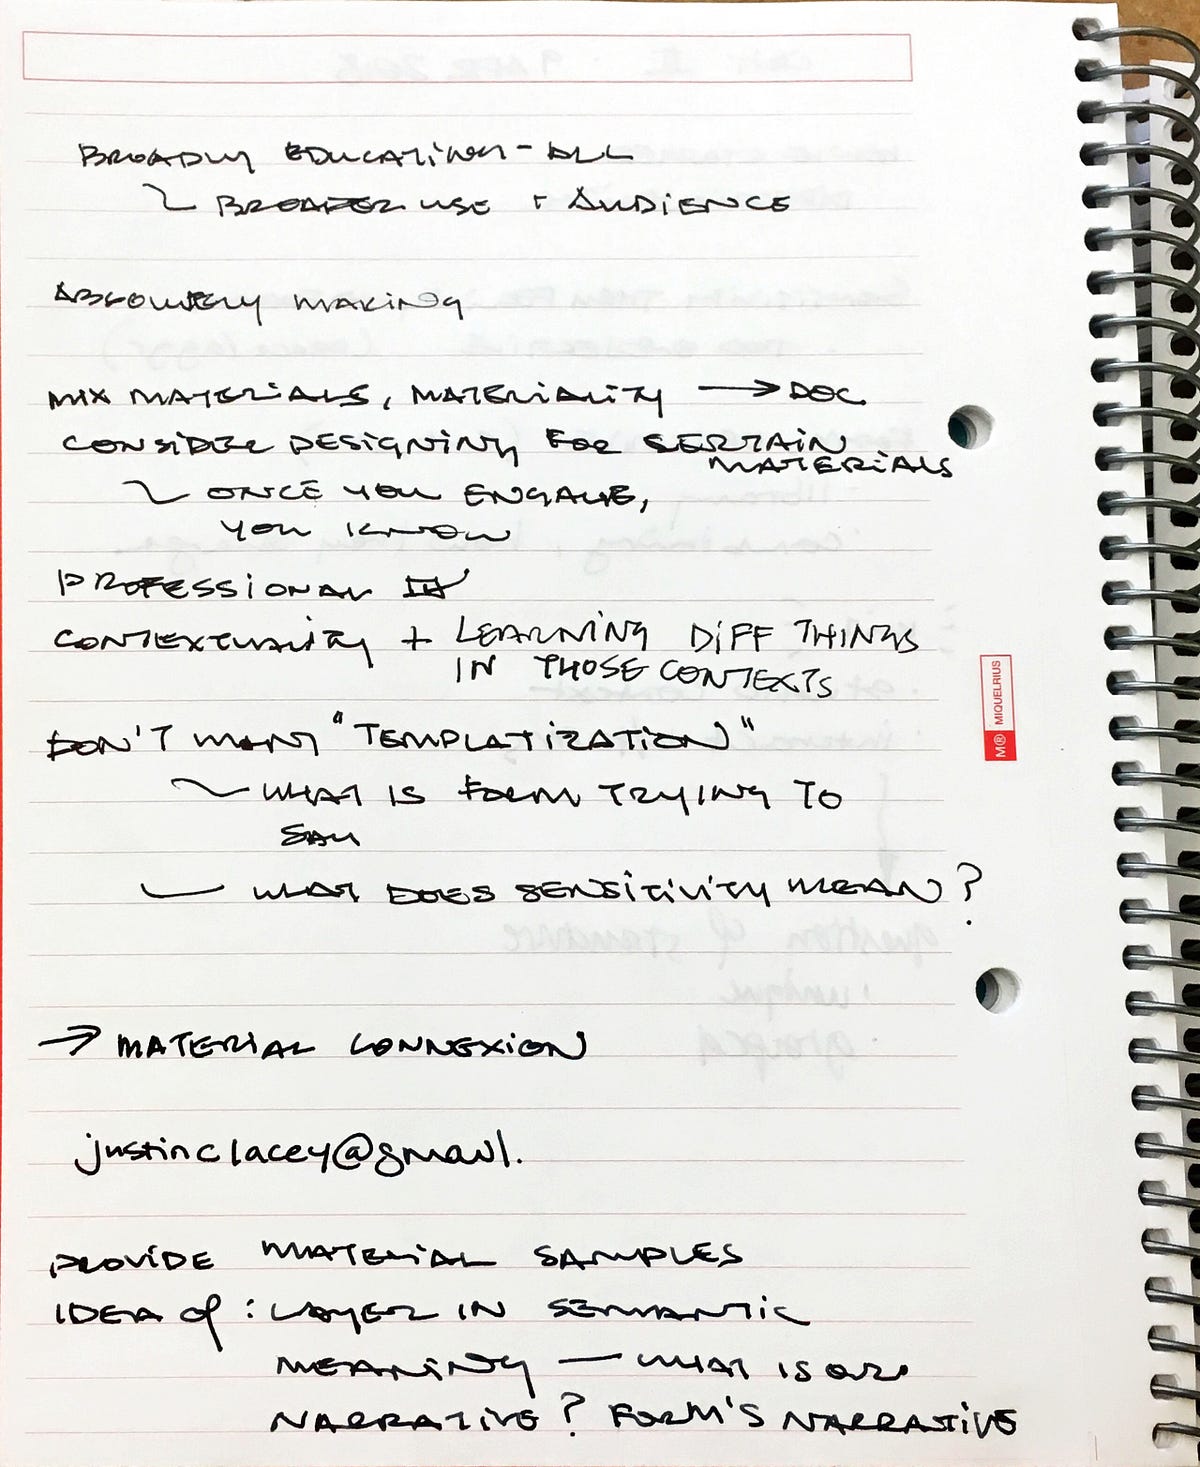 BROADLY EDUCATION - ALL
BROADER USE + AUDIENCE
ABSOLUTELY MAKING
MIX MATERIALS, MATERIALITY → DOC
CONSIDER DESIGNING FOR CERTAIN
MATERIALS
ONCE YOU ENGAGE,
YOU KNOW
PROFESSIONAL
CONTEXTUALITY + LEARNING DIFF THINGS
IN THOSE CONTEXTS
DON'T WANT "TEMPLATIZATION"
WHAT IS FORM TRYING TO
SAY
WHAT DOES SENSITIVITY MEAN?
→ MATERIAL CONNEXION
justinclacey@gmail.
PROVIDE MATERIAL SAMPLES
IDEA of: LAYER IN SEMANTIC
MEANING — WHAT IS OUR
NARRATIVE? FORM'S NARRATIVE
M® MIQUELRIUS